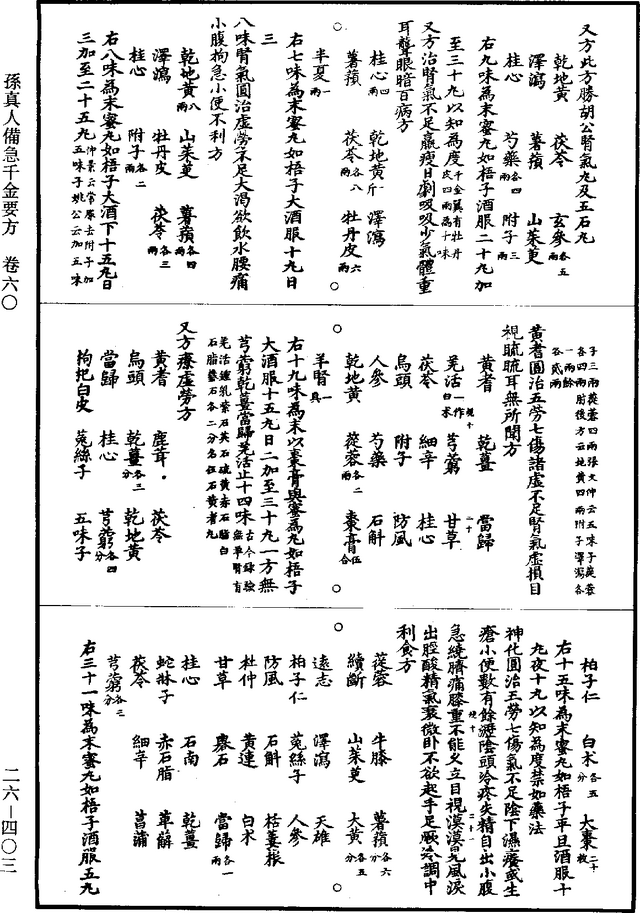 又方此方勝胡公腎氣丸及五石丸
乾地黃 茯苓 玄參各五兩
澤瀉 薯蕷 山茱萸
桂心 芍藥各四兩 附子三兩
右九味為末蜜丸如梧子酒服二十丸加
至三十丸以知為度千金翼有牡丹皮四兩為十味
又方治腎氣不足羸瘦日劇吸吸少氣體重
耳聾眼暗百病方
桂心四兩 乾地黃一斤 澤瀉
薯蕷 茯苓各八兩 牡丹皮六兩
半夏一兩
右七味為末蜜丸如梧子大酒服十丸日
三
八味腎氣圓治虛勞不足大渴欲飲水腰痛
小腹拘急小便不利方
乾地黃八兩 山茱萸 薯蕷各四兩
澤瀉 牡丹皮 茯苓各三兩
桂心 附子各二兩
右八味為末蜜丸如梧子大酒下十五丸日
三加至二十五丸仲景云常服去附子加五味子姚公云加五味
子三兩蓯蓉四兩張文仲云五味子蓯蓉各四兩肘後方云地黃四兩附子澤瀉各一兩餘各貳兩
黃耆圓治五勞七傷諸虛不足腎氣虛損目
視𥆧𥆧耳無所聞方
黃耆 乾薑 當歸
羌活一作白术 芎藭 甘草
茯苓 細辛 桂心
烏頭 附子 防風
人參 芍藥 石斛
乾地黃 蓯蓉各二兩 棗膏伍合
羊腎一具
右十九味為末以棗膏與蜜為丸如梧子
大酒服十五丸日二加至三十丸一方無
芎藭乾薑當歸羌活止十四味古今錄驗無羊腎有羌活鍾乳紫石英石硫黃赤石脂白石脂礬石各二分名伍石黃耆丸
又方療虛勞方
黃耆 鹿茸 茯苓
烏頭 乾薑各三分 乾地黃
當歸 桂心 芎藭各四分
枸杞白皮 菟絲子 五味子
柏子仁 白术各五分 大棗二十枚
右十五味為末蜜丸如梧子平旦酒服十
丸夜十丸以知為度禁如藥法
神化圓治五勞七傷氣不足陰下濕癢或生
瘡小便數有餘瀝陰頭冷疼失精自出小腹
急繞臍痛膝重不能久立目視漠漠見風淚
出脛酸精氣衰微臥不欲起手足厥冷調中
利食方
蓯蓉 牛膝 薯蕷各六分
續斷 山茱萸 大黃各五分
遠志 澤瀉 天雄
柏子仁 菟絲子 人參
防風 石斛 栝蔞根
杜仲 黃連 白术
甘草 礜石 當歸各一兩
桂心 石南 乾薑
蛇牀子 赤石脂 萆薢
茯苓 細辛 菖蒲
芎藭各二分
右三十一味為末蜜丸如梧子酒服五丸
孫真人備急千金要方 卷六〇
二六—四〇三